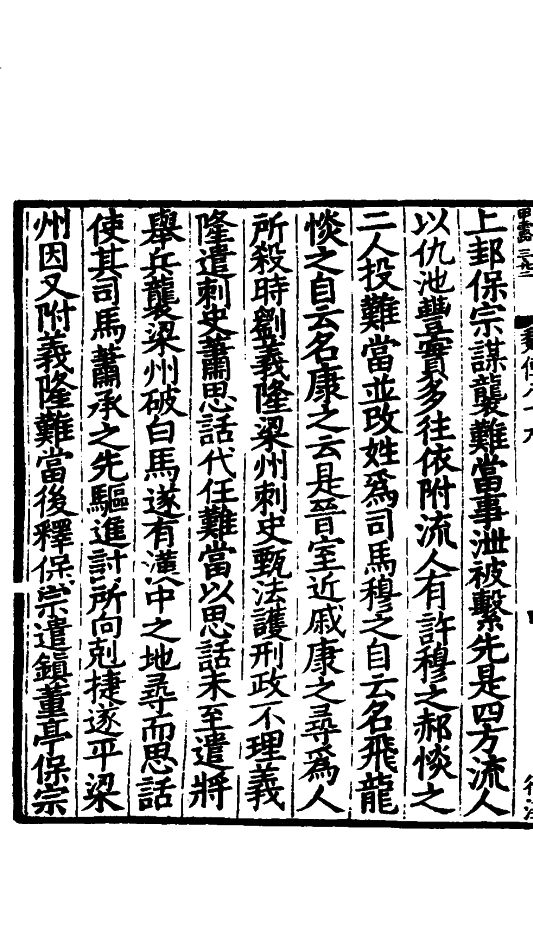 上邽保宗謀襲難當事泄被繫先是四方流人
以仇池豐實多往依附流人有許穆之郝惔之
二人投難當並改姓爲司馬穆之自云名飛龍
惔之自云名康之云是晉室近戚康之尋爲人
所殺時劉義隆梁州刺史甄法護刑政不理義
隆遣刺史蕭思話代任難當以思話未至遣將
舉兵襲梁州破白馬遂有漢中之地尋而思話
使其司馬蕭承之先驅進討所向剋捷遂平梁
州因又附義隆難當後釋保宗遣鎭董亭保宗